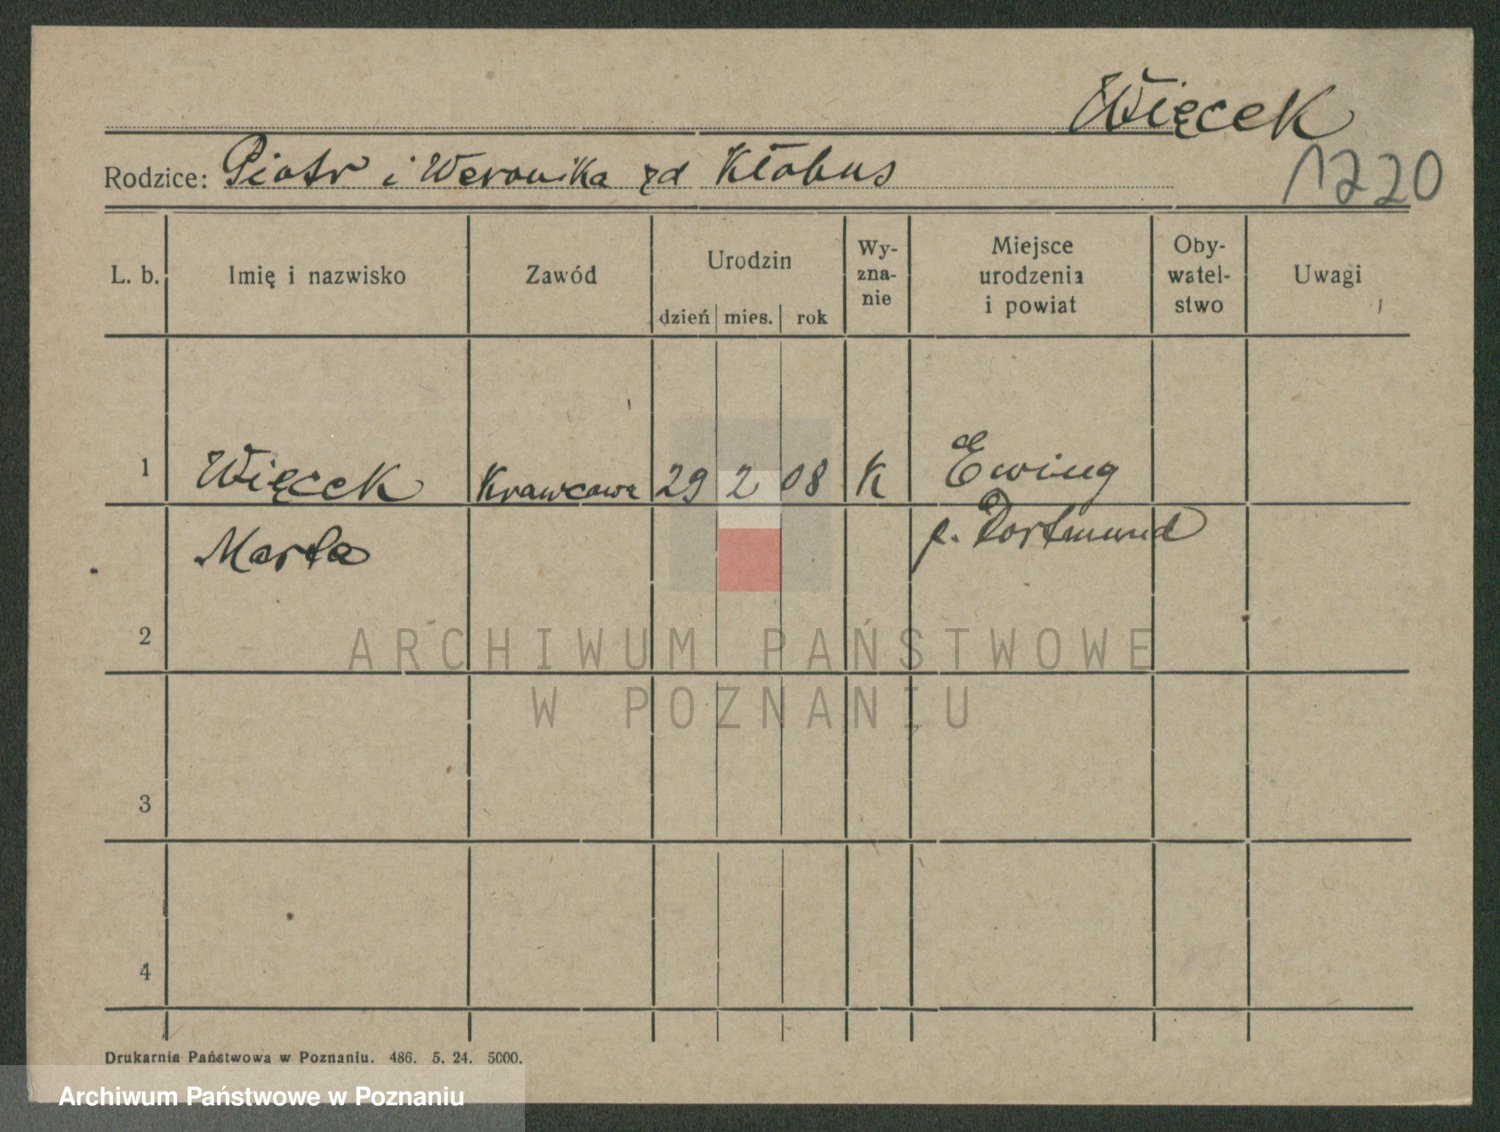 Więcek
Rodzice: Piotr i Weronika zd Kłobus
1220
L. b.
Imię i nazwisko
Zawód
Urodzin
dzień mies. rok
Wy-
zna-
nie
Miejsce
urodzenia
i powiat
Oby-
watel-
stwo
Uwagi
1 Więcek Krawcowa 29 2 08 K Ewing
Marta p. Dortmund
2
3
4
ARCHIWUM PAŃSTWOWE
W POZNANIU
Drukarnia Państwowa w Poznaniu. 486. 5. 24. 5000.
Archiwum Państwowe w Poznaniu